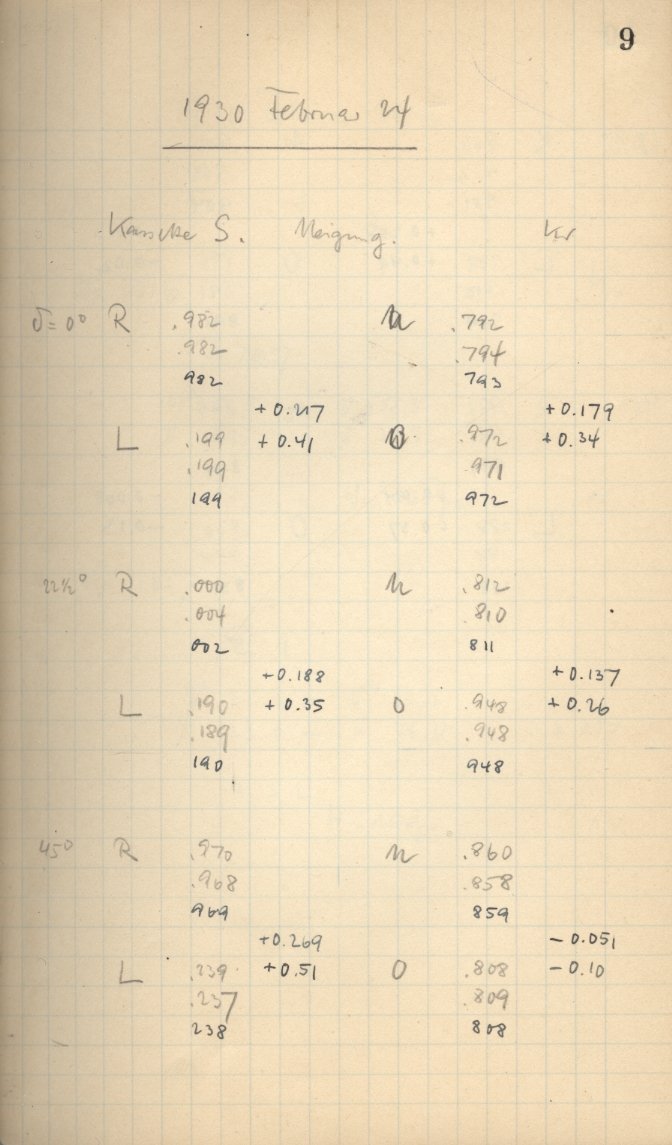 9
1930 Februar 24
Kassette S. Neigung. Kr
δ=0° R .982 u .792
.982 .794
982 793
+0.217 +0.179
L .199 +0.41 O .972 +0.34
.199 .971
199 972
22½° R .000 u .812
.004 .810
002 811
+0.188 +0.137
L .190 +0.35 O .948 +0.26
.189 .948
190 948
45° R .970 u .860
.968 .858
969 859
+0.269 -0.051
L .239 +0.51 O .808 -0.10
.237 .809
238 808